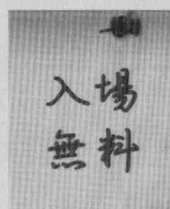 入場
無料